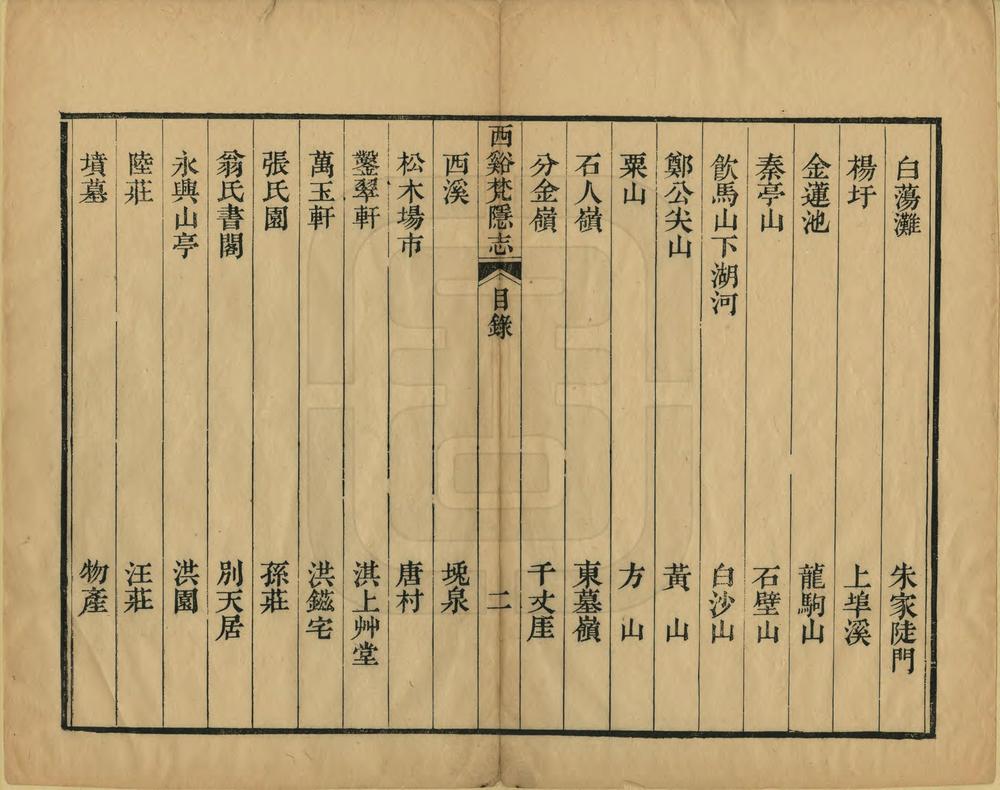 白蕩灘 朱家陡門
楊圩 上埠溪
金蓮池 龍駒山
秦亭山 石壁山
飲馬山下湖河 白沙山
鄭公尖山 黃山
粟山 方山
石人嶺 東墓嶺
分金嶺 千丈厓
西谿梵隱志 目錄 二
西溪 堍泉
松木場市 唐村
鑿翠軒 淇上艸堂
萬玉軒 洪鎡宅
張氏園 孫莊
翁氏書閣 別天居
永興山亭 洪園
陸莊 汪莊
墳墓 物產